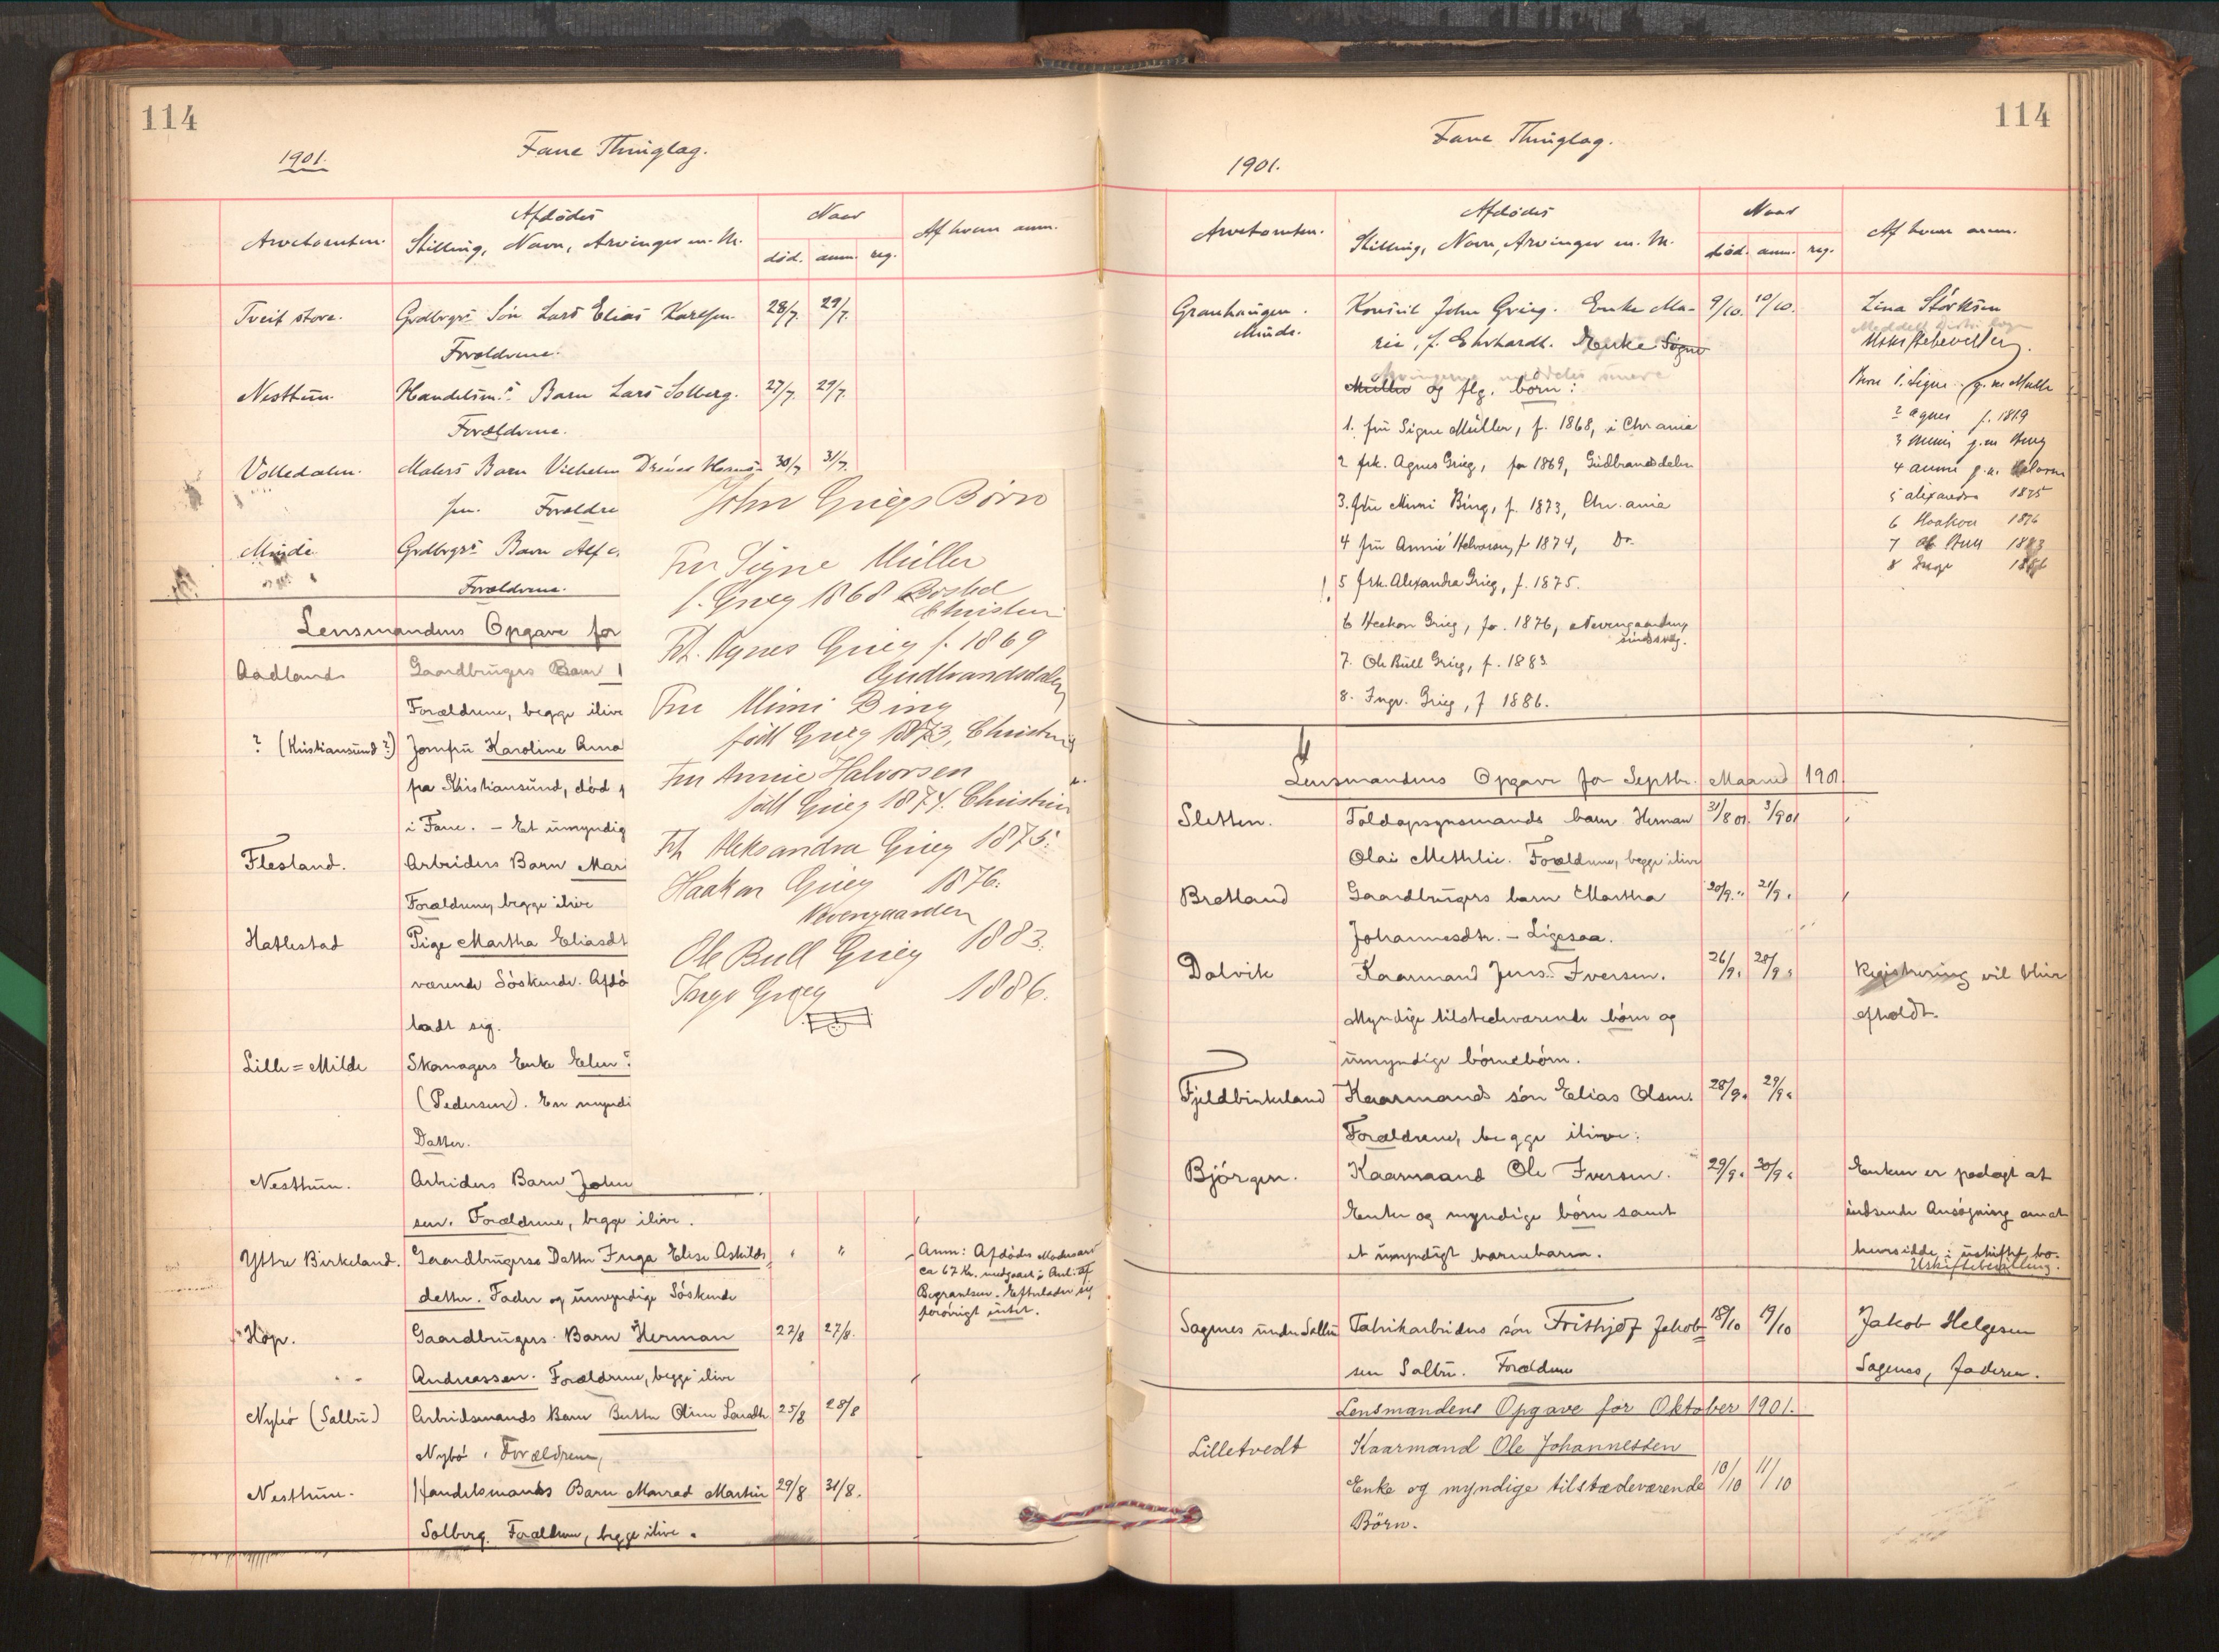 114
1901.
Fane Thinglag.
Arvetomten.
Afdødes
Stilling, Navn, Arvinger m. M.
Naar
død. anm. reg.
Af hvem anm.
Tveit store. Grdbrgrs Søn Lars Elias Karlsen. 28/7. 29/7.
Forældrene.
Nesttun. Handelsm.s Barn Lars Solberg. 27/7. 29/7.
Forældrene.
Malers Barn Vilhelm 30/7 31/7.
sen. Forældre
Minde Grdbrgrs Barn Alf
Forældrene.
Lensmandens Opgave for
Aadland Gaardbrugers Barn
Forældrene, begge ilive
? (Kristiansund?) Jomfru Karoline
fra Kristiansund, død
i Fane. – Et umyndig
Flesland. Arbeiders Barn Mar
Forældrene, begge ilive
Hatlestad Pige Martha Eliasdt
værende Söskende. Afdö
ladt sig.
Lille=Milde Skomagers Enke Elen
(Pedersen). En myndi
Datter.
Nesttun. Arbeiders Barn John
sen. Forældrene, begge ilive.
Yttre Birkeland. Gaardbrugers Datter Inga Elise Askilds
datter. Fader og umyndige Söskende
Anm: Afdödes Modersarv
ca 67 Kr. medgaaet i Anl. af
Begravelsen. Efterlader sig
forövrigt intet.
Hop. Gaardbrugers Barn Herman 22/8 27/8.
Andreassen. Forældrene, begge ilive
Nybö (Salbu) Arbeidsmands Barn Berthe Oline Larsdtr 25/8 28/8
Nybö. Forældrene,
Nesttun. Handelsmands Barn Monrad Martin 29/8 31/8.
Solberg. Forældrene, begge ilive.
John Griegs Børn
Fru Signe Müller
f. Grieg 1868 Bosted
Christian
Frk. Agnes Grieg f. 1869
Gudbrandsdalen
Fru Mimi Bing
født Grieg 1873, Christia
Fru Annie Halvorsen
født Grieg 1874. Christia
Frk Aleksandra Grieg 1875.
Haakon Grieg 1876.
Nevengaarden
Ole Bull Grieg 1883.
Inga Grieg 1886.
114
Fane Thinglag.
1901.
Arvetomten.
Afdødes
Stilling, Navn, Arvinger m. M.
Naar
død. anm. reg.
Af hvem anm.
Konsul John Grieg. Enke Ma- 9/10. 10/10. Lina Störksen
Minde. rie, f. Ehrhardt. Enke Signe
Uskiftebevilling.
Müller og flg. børn:
1. fru Signe Müller, f. 1868, i Chrania
2 frk. Agnes Grieg, fø 1869, Gudbrandsdalen
3. fru Mimi Bing, f. 1873, Chr.ania
4 fru Annie Halvorsen, f 1874, Do
5 frk. Alexandra Grieg, f. 1875.
6 Haakon Grieg, fø. 1876, Nevengaarden
sindssvag.
7. Ole Bull Grieg, f. 1883
8. Inga. Grieg, f 1886.
Børn 1. Signe g. m. Müller
2 Agnes f. 1869
3 Mimi g.m Bing
4 Annie g. m. Halvorsen
5 Alexandra 1875
6 Haakon 1876
7 Ole Bull 1883
8 Inga 1886
Lensmandens Opgave for Septbr. Maaned 1901.
Sletten. Toldopsynsmands barn Herman 31/8 01. 3/9 01
Olai Methlie. Forældrene, begge ilive
Bretland Gaardbrugers barn Martha 20/9. 21/9.
Johannesdtr. – Ligesaa.
Dalvik Kaarmand Jens Iversen. 26/9. 28/9. Registrering vil blive
Myndige tilstedeværende børn og afholdt.
umyndige börnebörn.
Fjeldbirkeland Kaarmands sön Elias Olsen. 28/9. 29/9.
Forældrene, begge ilive.
Björgen. Kaarmand Ole Iversen. 29/9. 30/9. Enken er paalagt at
Enke og myndige børn samt indsende Ansögning om at
et umyndigt barnebarn. hensidde i uskiftet bo.
Uskiftebevilling.
Sagenes under Salbu Fabrikarbeiders sön Frithjof Jakob= 18/10 19/10 Jakob Helgesen
sen Salbu. Forældrene Sagenes, faderen.
Lensmandens Opgave for Oktober 1901.
Lilletvedt Kaarmand Ole Johannessen
Enke og myndige tilstædeværende 10/10 11/10
Börn.